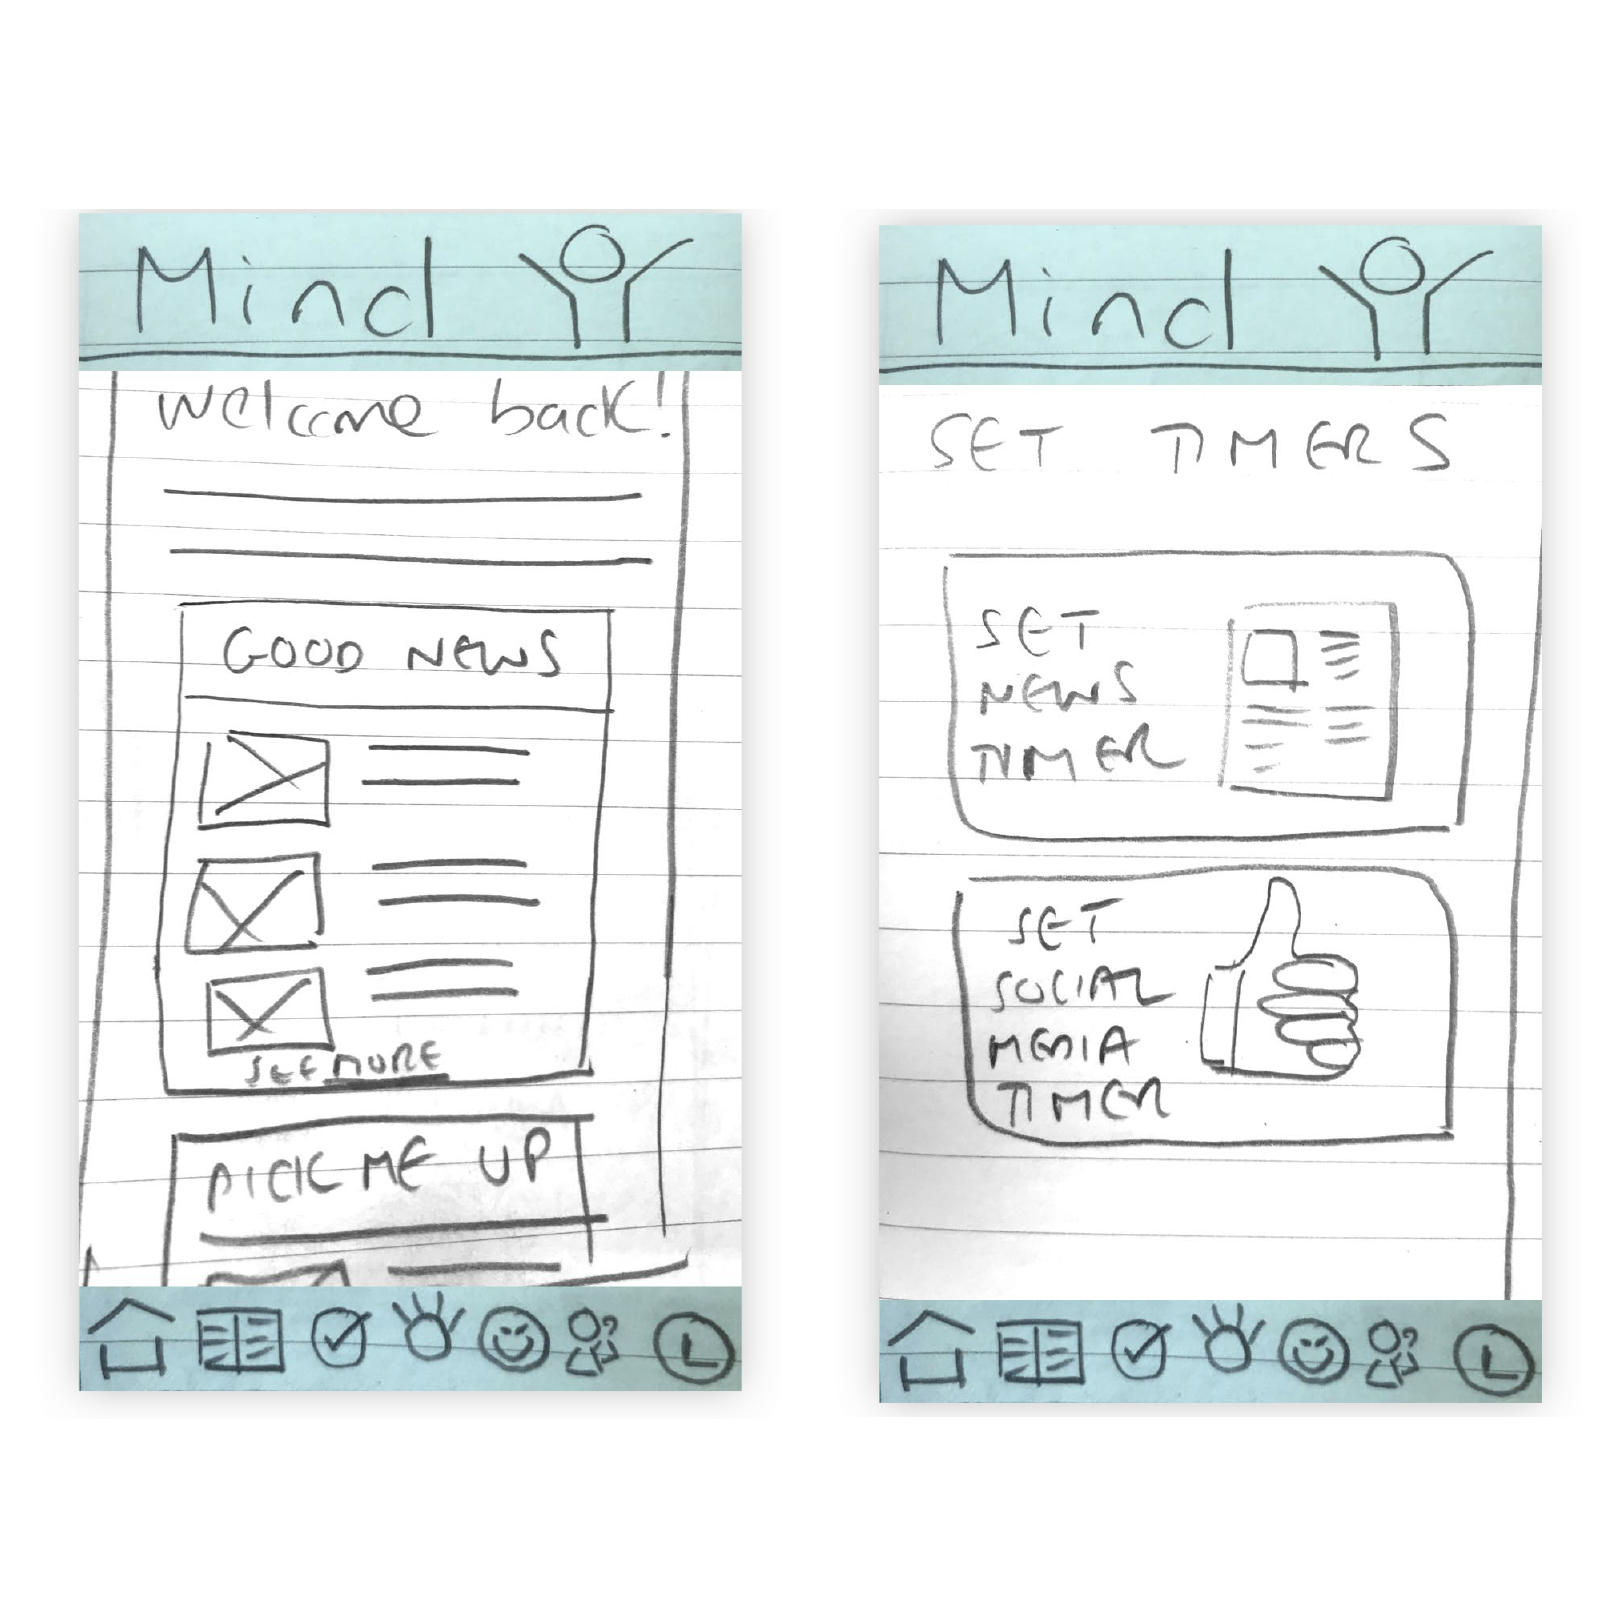 Mind
welcome back!
GOOD NEWS
SEE MORE
PICK ME UP
Mind
SET TIMERS
SET
NEWS
TIMER
SET
SOCIAL
MEDIA
TIMER